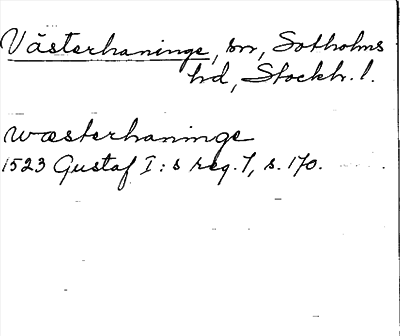 Västerhaninge, sn, Sotholms
hd, Stockh. l.
Wæsterhaninge
1523 Gustaf I:s reg. 1, s. 170.